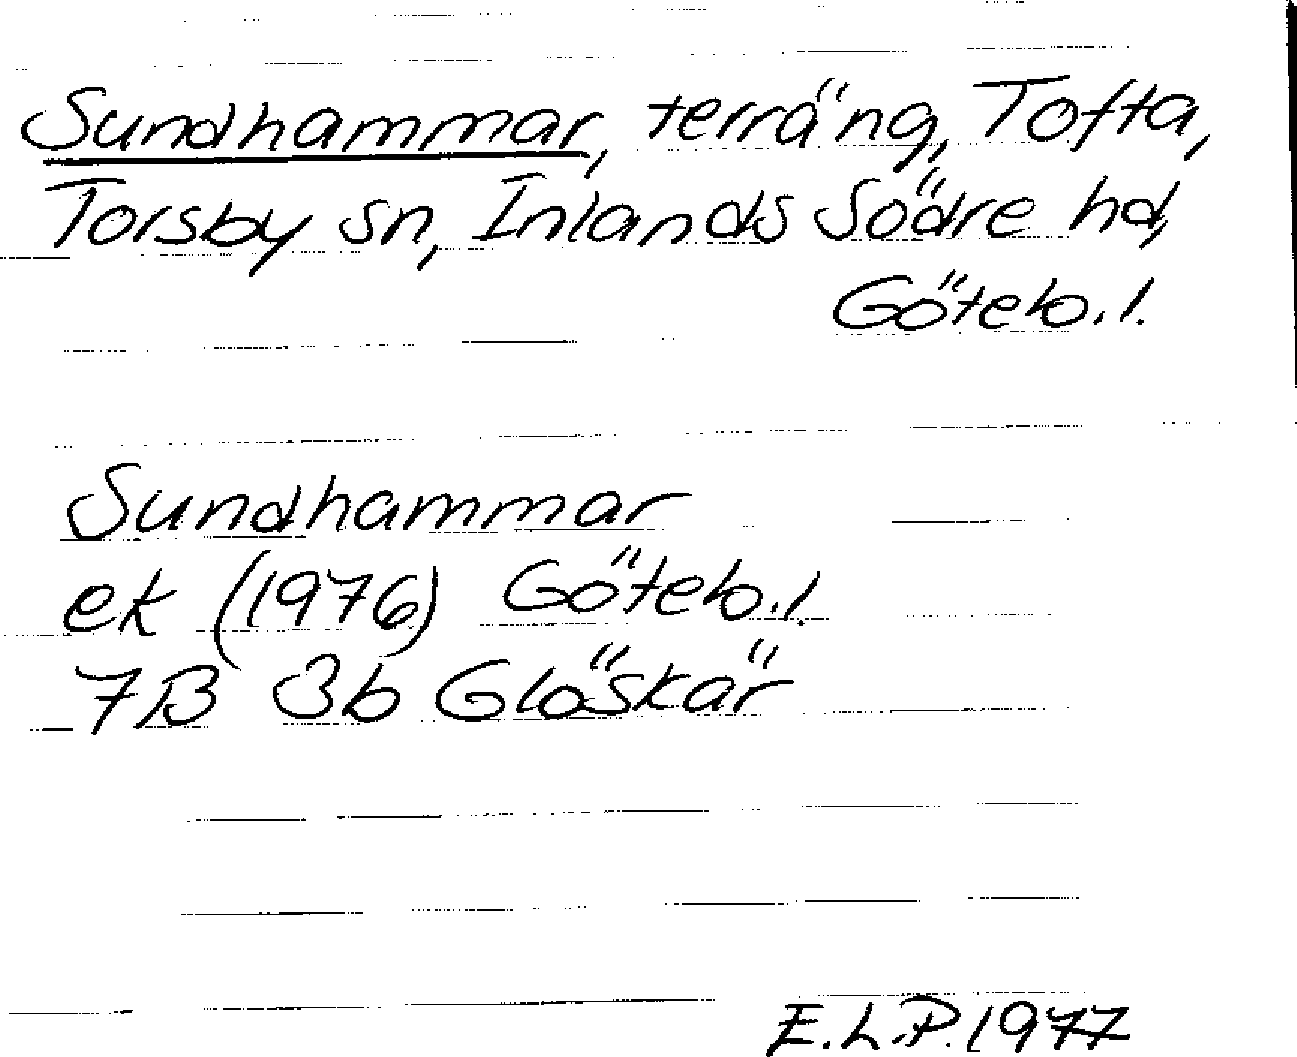 Sundhammar, terräng, Tofta,
Torsby sn, Inlands Södre hd,
Göteb. l.
Sundhammar
ek (1976) Göteb. l.
7B 3b Glöskär
E.L.P. 1977